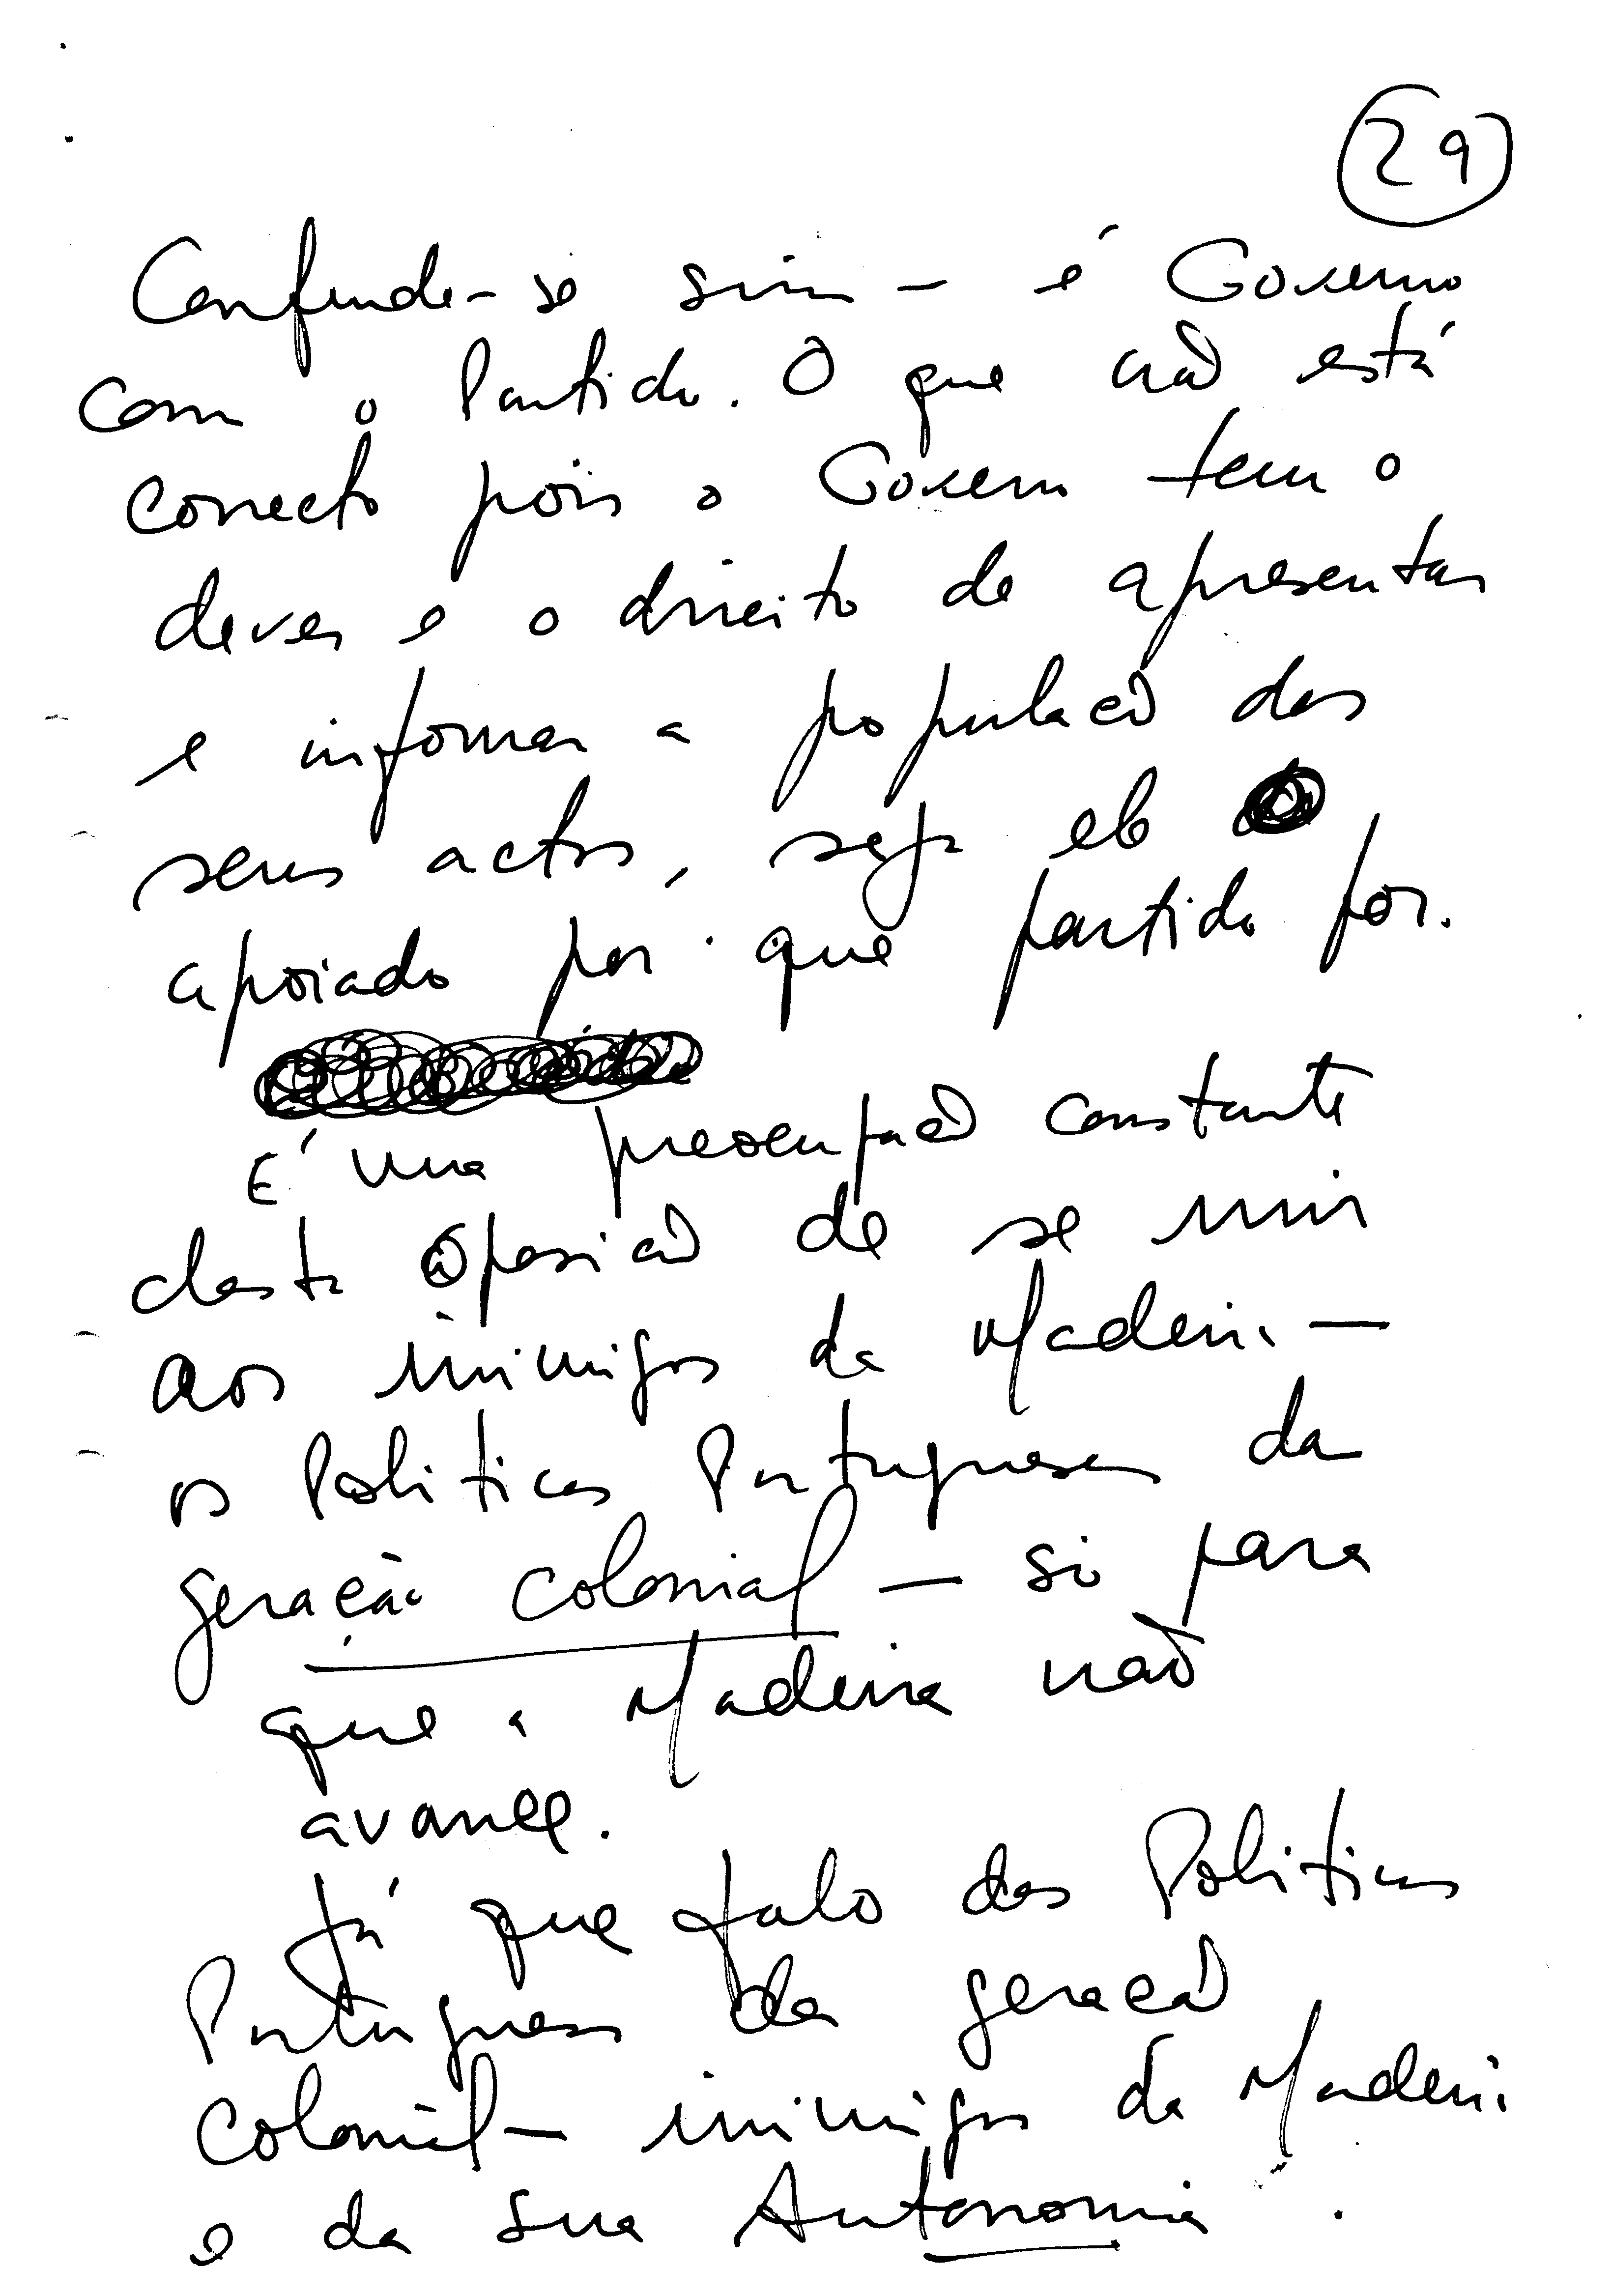 29
Confunde-se sim - é Governo
com o Partido. O que não está
correcto pois o Governo tem o
dever e o direito de apresentar
e informar a população dos
seus actos, seja ele
apoiado por que partido for.
É uma preocupação constante
desta Oposição de se unir
aos inimigos da Madeira —
os Politicos Portugueses da
geração colonial — só para
que a Madeira não
avance.
Já que falo dos Politicos
Portugueses da geração
colonial — inimigos da Madeira
e da sua Autonomia .